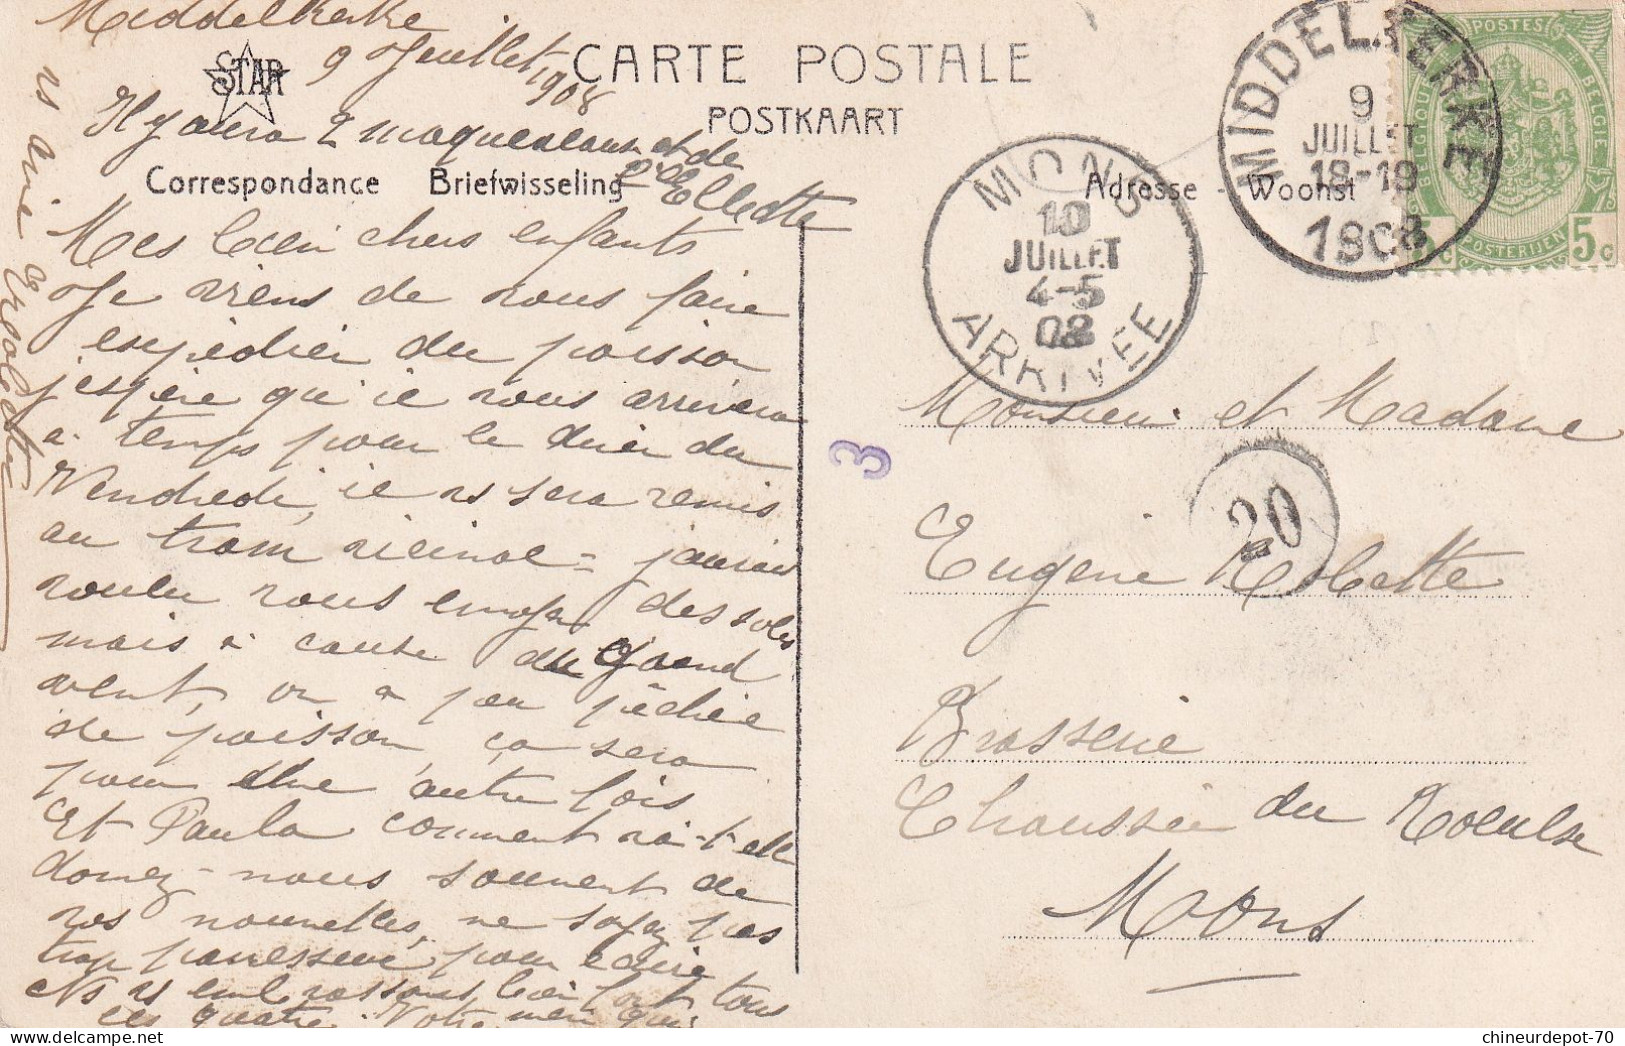 Middelkerke
9 Juillet 1908
STAR
CARTE POSTALE
POSTKAART
Il y aura 2 maquereaux et de
Correspondance Briefwisseling
Adresse - Woonst
Mes bien chers enfants
Je viens de vous faire
expédier du poisson,
j'espère qu'il vous arrivera
à temps pour le diner du
Vendredi, il vs sera remis
au tram vicinal = j'aurais
voulu vous envoyer des soles
mais à cause du Grand
vent, on a peu pêché
de poisson, ça sera
pour une autre fois
Et Paula comment va-t-elle
donnez-nous souvent de
vos nouvelles, ne soyez pas
trop paresseux pour écrire
Ns vs embrassons bien fort tous
les quatre. Votre mère qui
vs aime
MIDDELKERKE
9
JUILLET
18-19
1908
MONS
10
JUILLET
4-5
08
ARRIVÉE
POSTES
BELGIQUE
BELGIE
POSTERIJEN
5c
5c
3
20
Monsieur et Madame
Eugène Colbette
Brasserie
Chaussée du Roeulx
Mons
chineurdepot-70